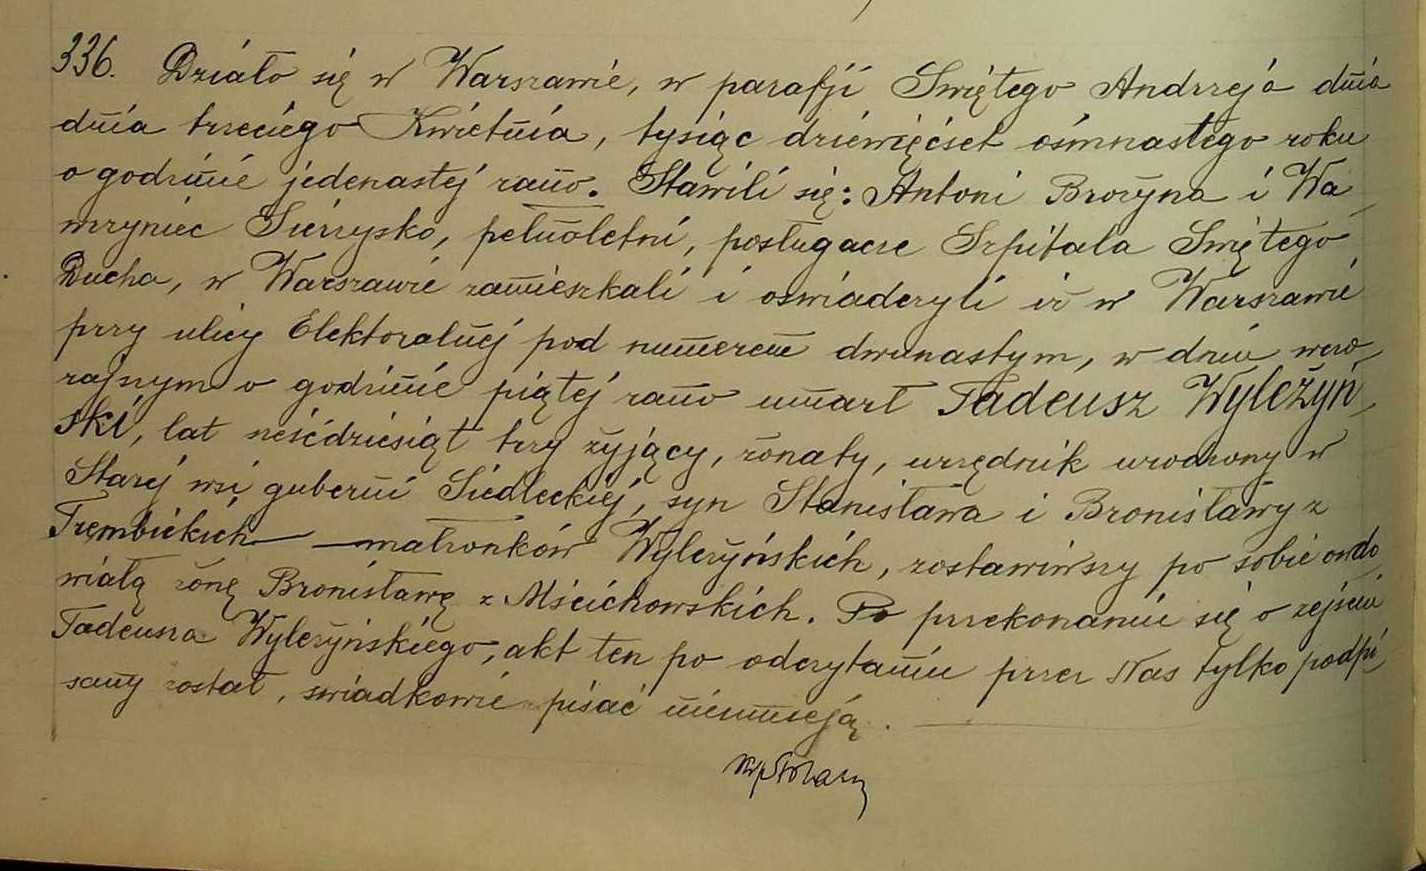 336. Działo się w Warszawie, w parafji Świętego Andrzeja dnia
dnia trzeciego Kwietnia, tysiąc dziewięćset ośmnastego roku
o godzinie jedenastej rano. Stawili się: Antoni Brozyna i Wa-
wrzyniec Sierzysko, pełnoletni, posługacze Szpitala Świętego
Ducha, w Warszawie zamieszkali i oswiadczyli iż w Warszawie
przy ulicy Elektoralnej pod numerem dwunastym, w dniu wczo-
rajszym o godzinie piątej rano umarł Tadeusz Wyleżyń-
ski, lat sześćdziesiąt trzy żyjący, żonaty, urzędnik urodzony w
Starej wsi gubernii Siedleckiej, syn Stanisława i Bronisławy z
Trembickich — małżonków Wyleżyńskich, zostawiwszy po sobie owdo-
wiałą żonę Bronisławę z Mścichowskich. Po przekonaniu się o zejściu
Tadeusza Wyleżyńskiego, akt ten po odczytaniu przez Nas tylko podpi-
sany został, swiadkowie pisać nieumieją.